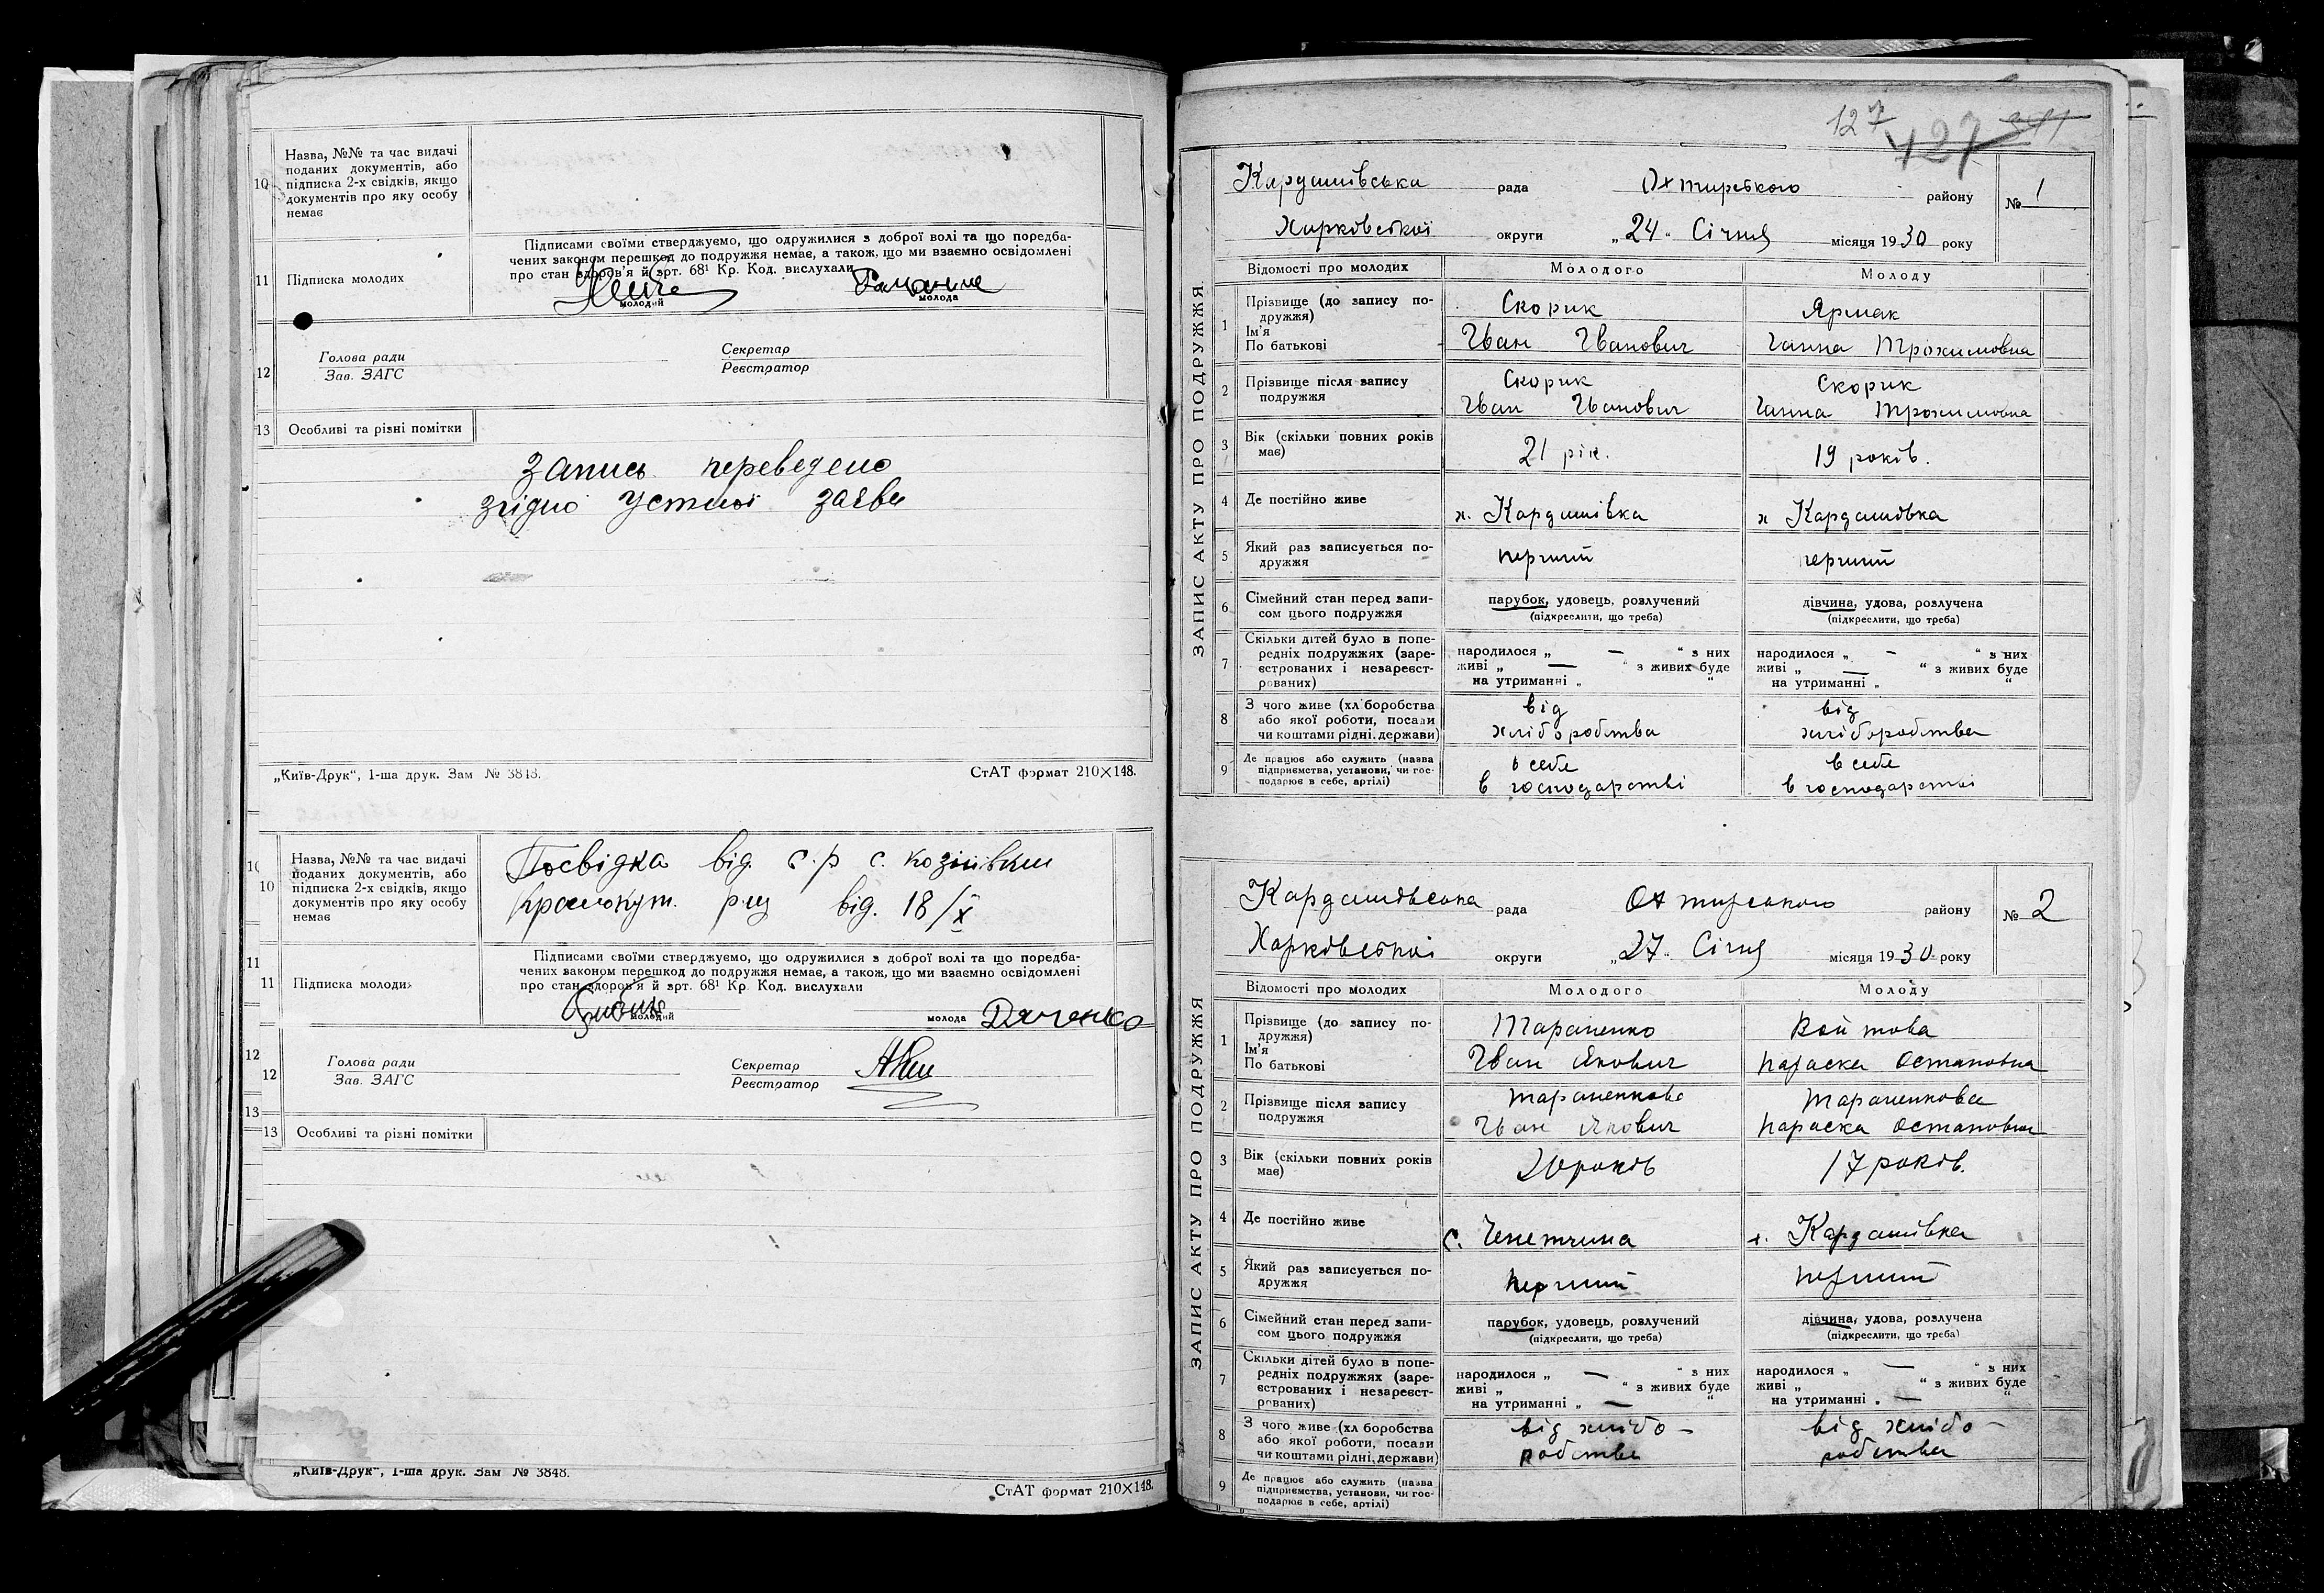 10 Назва, №№ та час видачі
поданих документів, або
підписка 2-х свідків, якщо
документів про яку особу
немає
Підписами своїми стверджуємо, що одружилися з доброї волі та що поредба-
чених законом перешкод до подружжя немає, а також, що ми взаємно освідомлені
про стан здоров'я й арт. 68¹ Кр. Код. вислухали
11 Підписка молодих
молодий молода
12 Голова ради Секретар
Зав. ЗАГС Реєстратор
13 Особливі та різні помітки
Запись переведено
згідно устної заяви
„Київ-Друк“, 1-ша друк. Зам № 3848. СтАТ формат 210×148.
10
10 Назва, №№ та час видачі
поданих документів, або
підписка 2-х свідків, якщо
документів про яку особу
немає
Посвідка від. с.р с. Козіївки
Краснокут. р-ну від. 18/X
Підписами своїми стверджуємо, що одружилися з доброї волі та що поредба-
чених законом перешкод до подружжя немає, а також, що ми взаємно освідомлені
про стан здоров'я й арт. 68¹ Кр. Код. вислухали
11
11 Підписка молодих
молодий молода Дяченко
12
12 Голова ради Секретар
Зав. ЗАГС Реєстратор
13
13 Особливі та різні помітки
„Київ-Друк“, 1-ша друк. Зам № 3848.
СтАТ формат 210×148.
127 427
ЗАПИС АКТУ ПРО ПОДРУЖЖЯ
Кардашівська рада Охтирського району № 1
Харківської округи „24“ Січня місяця 1930 року
Відомості про молодих Молодого Молоду
1 Прізвище (до запису по-
дружжя)
Ім'я
По батькові
Скорик Ярмак
Іван Іванович Ганна Трохимовна
2 Прізвище після запису
подружжя
Скорик Скорик
Іван Іванович Ганна Трохимовна
3 Вік (скільки повних років
має)
21 рік. 19 років.
4 Де постійно живе х. Кардашівка х Кардашівка
5 Який раз записується по-
дружжя
перший перший
6 Сімейний стан перед запи-
сом цього подружжя
парубок, удовець, розлучений дівчина, удова, розлучена
(підкреслити, що треба) (підкреслити, що треба)
7 Скільки дітей було в попе-
редніх подружжях (заре-
єстрованих і незареєст-
рованих)
народилося „ — “ з них народилося „ — “ з них
живі „ — “ з живих буде живі „ — “ з живих буде
на утриманні „ “ на утриманні „ “
8 З чого живе (хл боробства
або якої роботи, посади
чи коштами рідні, держави)
від від
хліборобства хліборобства
9 Де працює або служить (назва
підприємства, установи, чи гос-
подарює в себе, артілі)
в себе в себе
в господарстві в господарстві
ЗАПИС АКТУ ПРО ПОДРУЖЖЯ
Кардашівська рада Охтирського району № 2
Харківської округи „27“ Січня місяця 1930 року
Відомості про молодих Молодого Молоду
1 Прізвище (до запису по-
дружжя)
Ім'я
По батькові
Тараненко Войтова
Іван Якович Параска Остаповна
2 Прізвище після запису
подружжя
Тараненково Тараненкова
Іван Якович Параска Остаповна
3 Вік (скільки повних років
має)
20 років 17 років.
4 Де постійно живе с. Чепетчина х. Кардашівка
5 Який раз записується по-
дружжя
перший перший
6 Сімейний стан перед запи-
сом цього подружжя
парубок, удовець, розлучений дівчина, удова, розлучена
(підкреслити, що треба) (підкреслити, що треба)
7 Скільки дітей було в попе-
редніх подружжях (заре-
єстрованих і незареєст-
рованих)
народилося „ — “ з них народилося „ — “ з них
живі „ “ з живих буде живі „ “ з живих буде
на утриманні „ — “ на утриманні „ — “
8 З чого живе (хл боробства
або якої роботи, посади
чи коштами рідні, держави)
від хлібо- від хлібо-
робства робства
9 Де працює або служить (назва
підприємства, установи, чи гос-
подарює в себе, артілі)